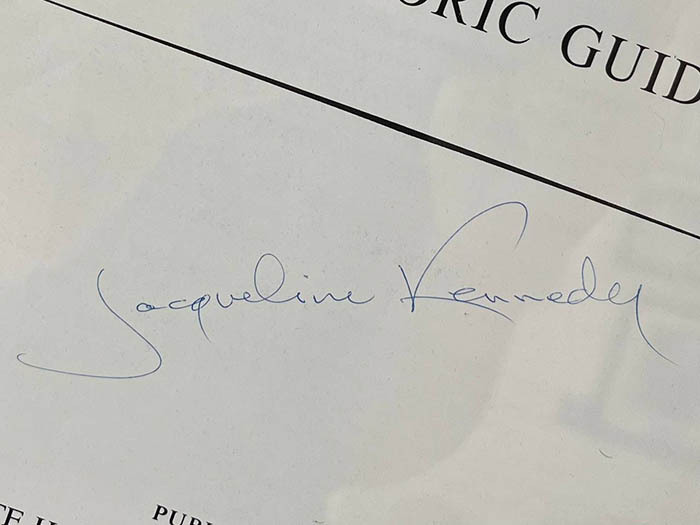 ORIC GUID
Jacqueline Kennedy
TE H
PUBL